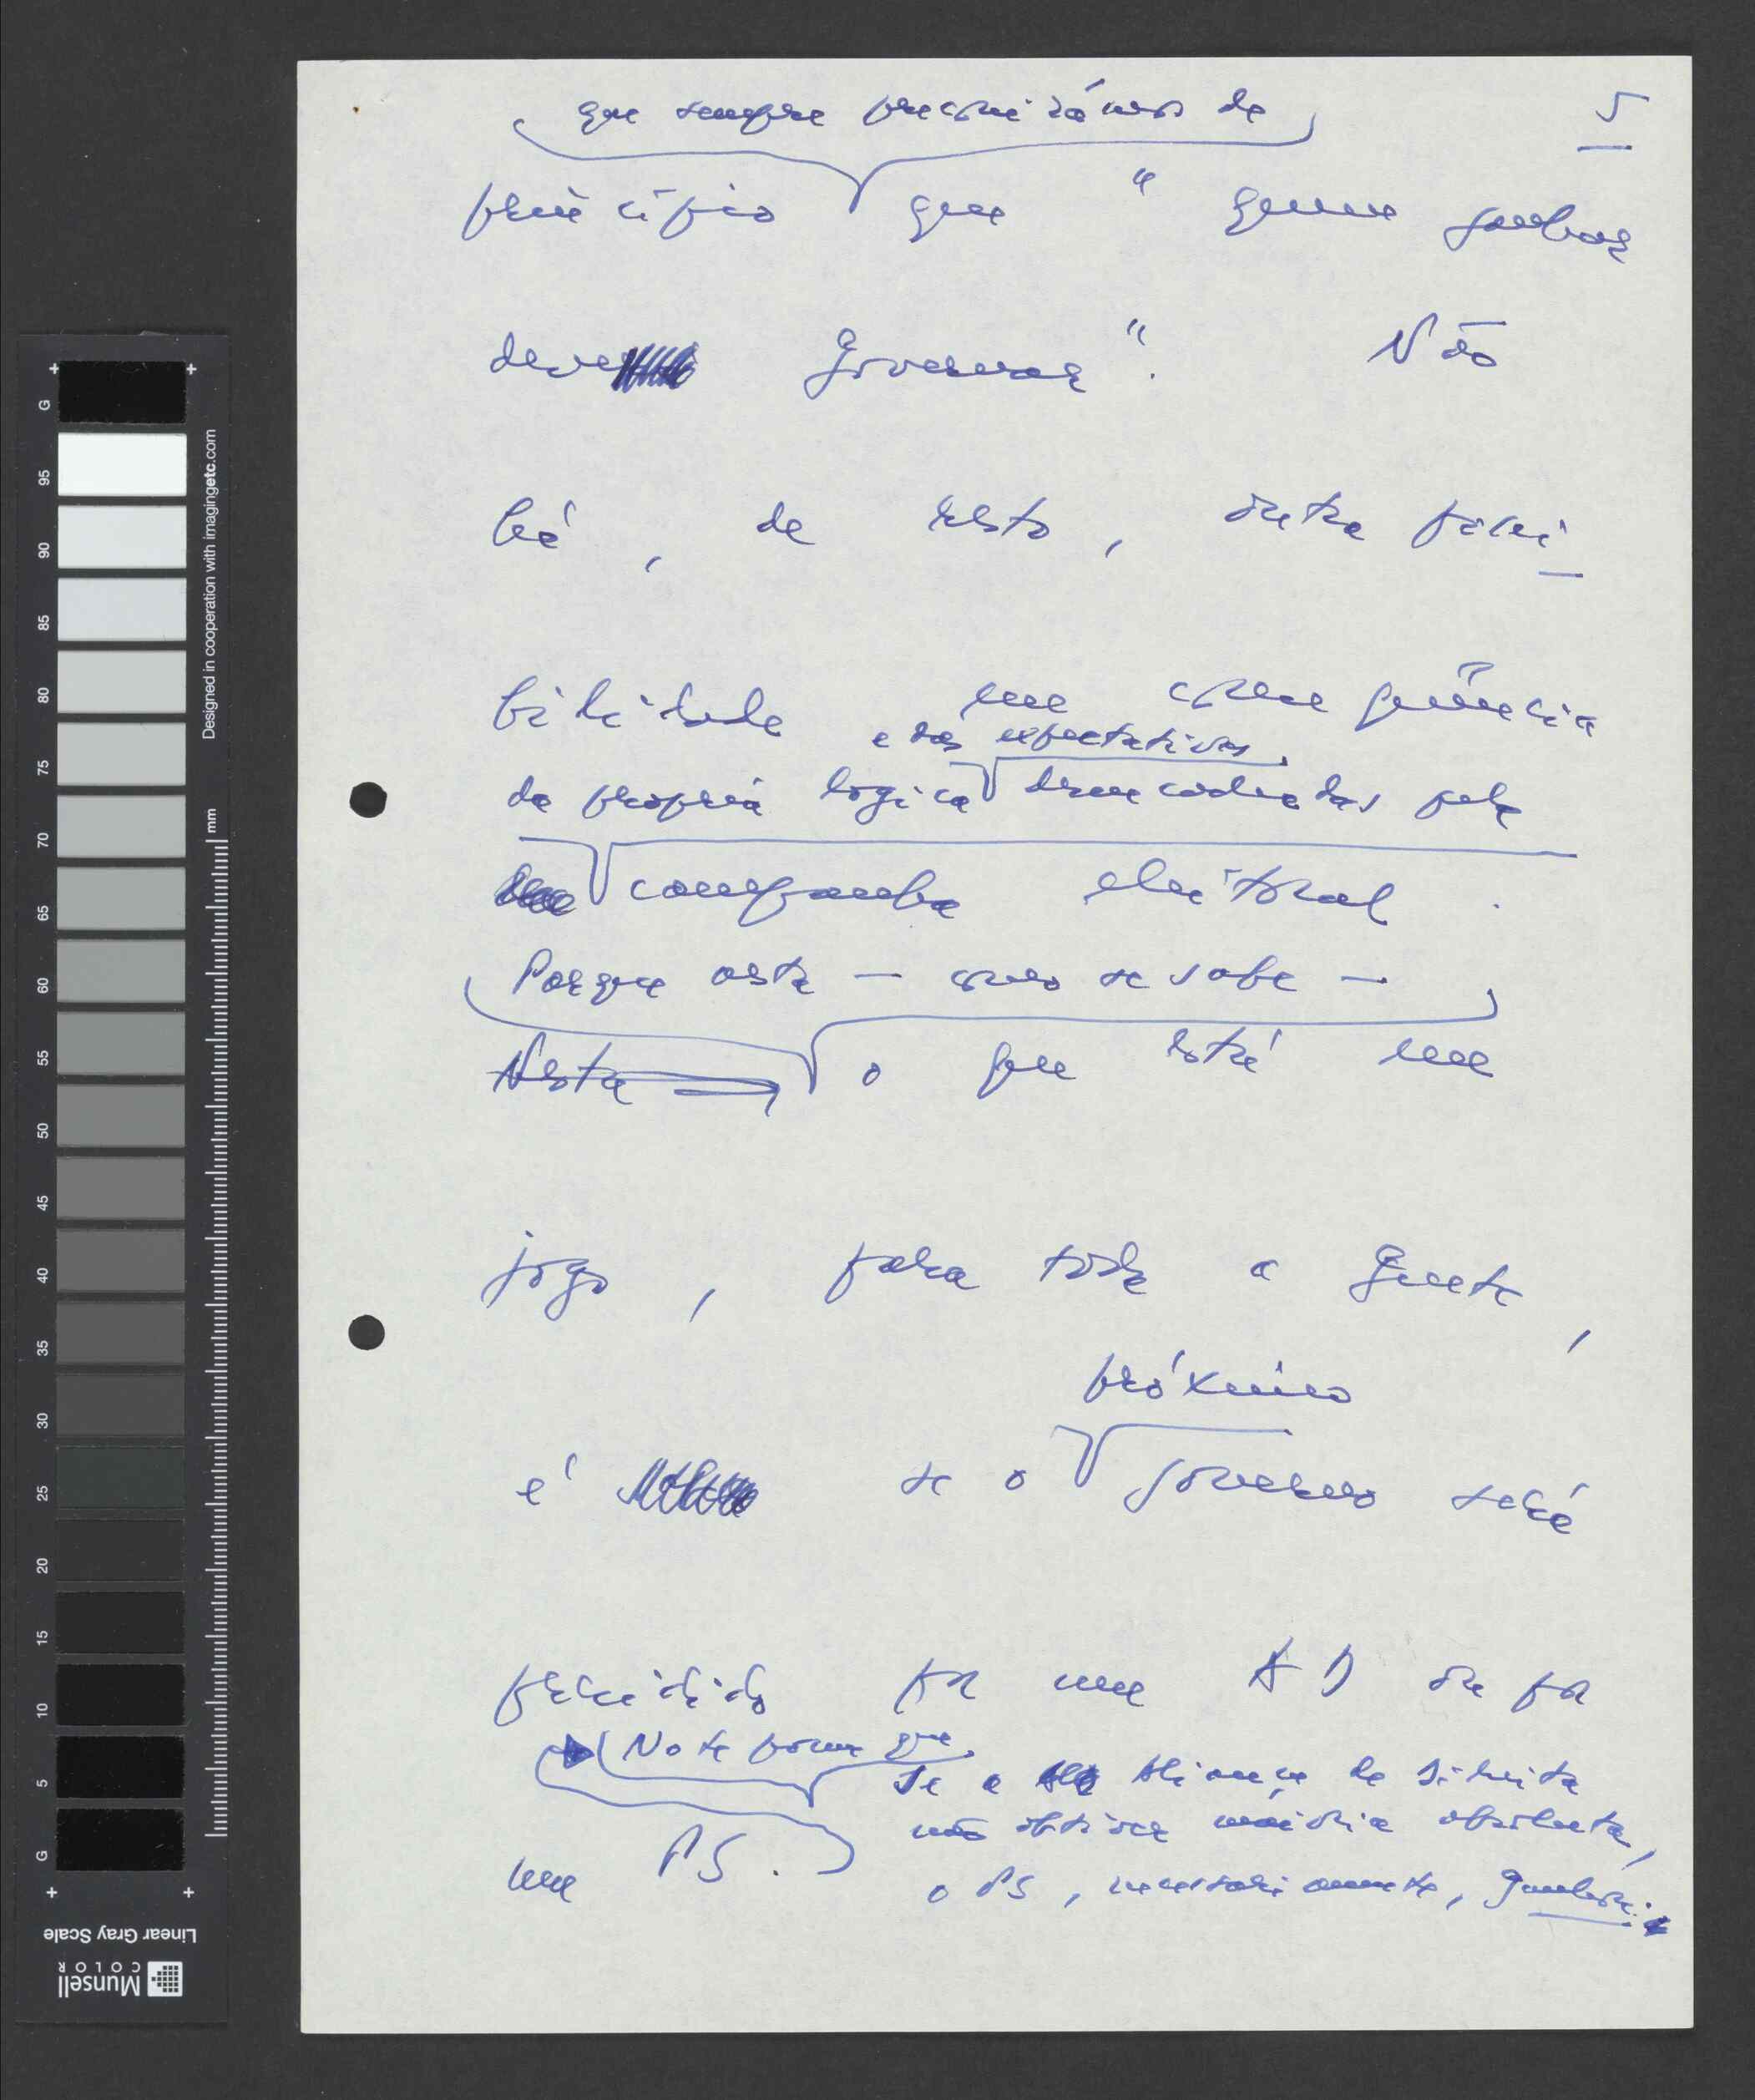 5
que sempre preconizámos de
princípio que "quem ganhar
deve governar". Não
há, de resto, outra possi
bilidade em consequência
e das expectativas
da própria logica desencadeadas pela
campanha eleitoral.
Porque esta — como se sabe —
Nesta o que está em
jogo, para toda a gente,
próximo
é se o governo será
presidido por um AD ou por
Note porem que
Se a Aliança de Direita
um PS.
não obtiver maioria absoluta,
o PS, necessariamente, ganhará.
G
95
90
85
80
75
70
65
60
55
50
45
40
35
30
25
20
15
10
5
G
mm
Designed in cooperation with imagingetc.com
Linear Gray Scale
Munsell
COLOR